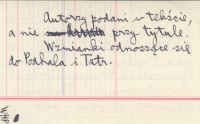 Autorzy podani w tekście,
a nie przy tytule.
Wzmianki odnoszące się
do Podhala i Tatr.